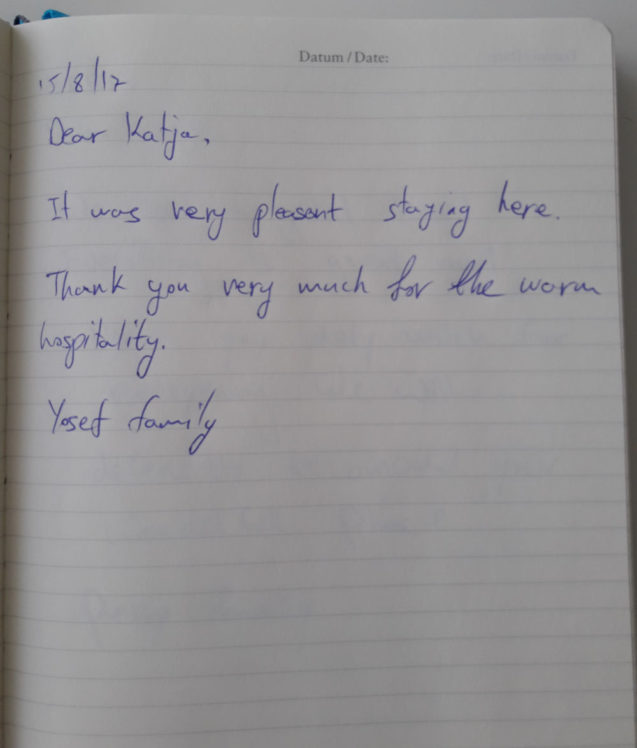 Datum / Date:
15/8/17
Dear Katja,
It was very pleasant staying here.
Thank you very much for the warm
hospitality.
Yosef family